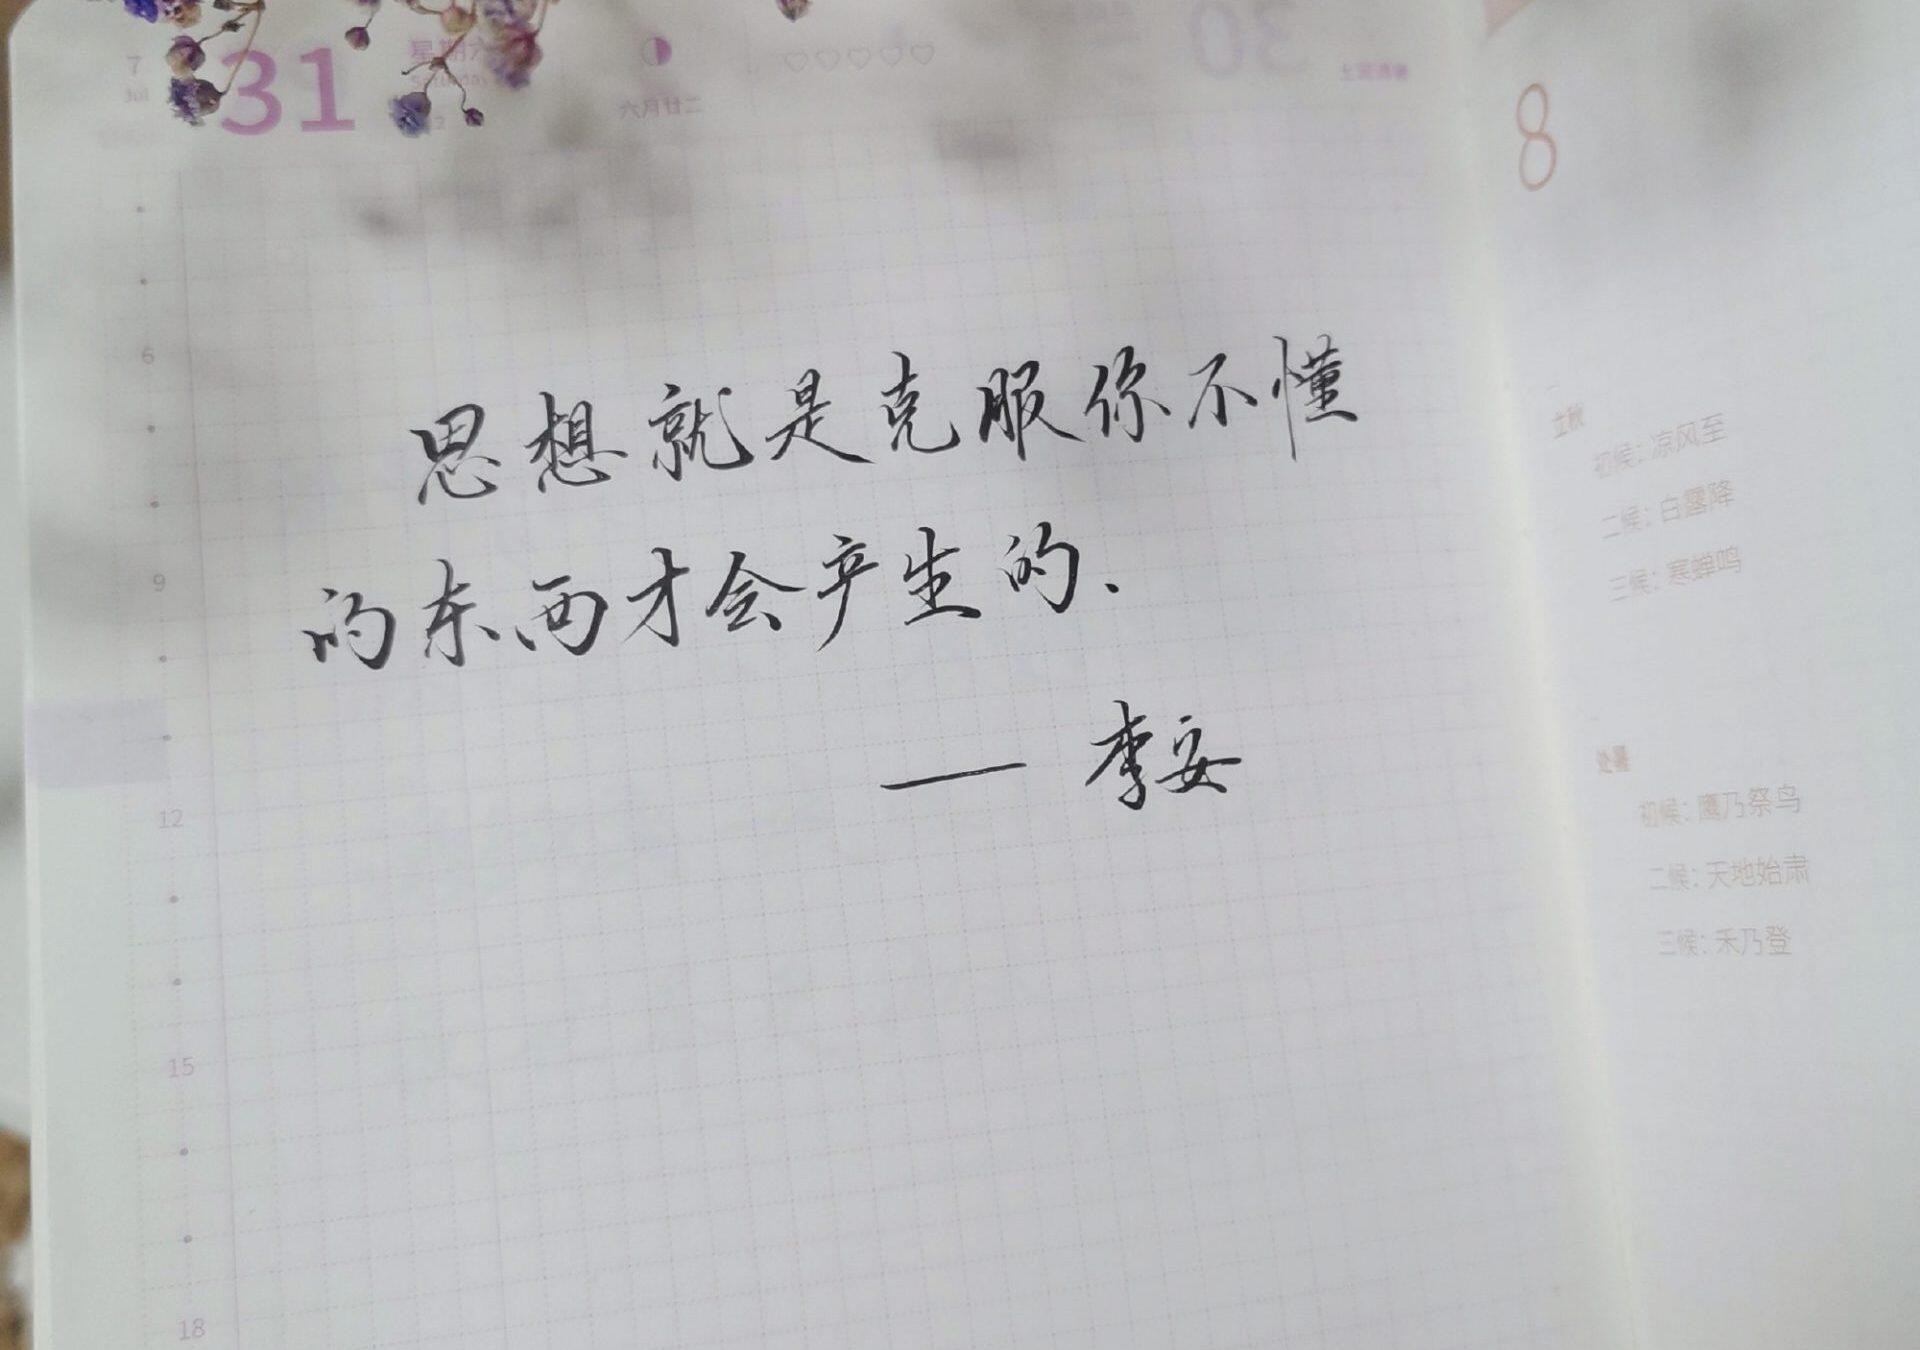 7
Jul
31
星期六
Saturday
六月廿二
30
8
6
思想就是克服你不懂
的东西才会产生的.
—— 李安
9
12
15
18
立秋
初候：凉风至
二候：白露降
三候：寒蝉鸣
处暑
初候：鹰乃祭鸟
二候：天地始肃
三候：禾乃登